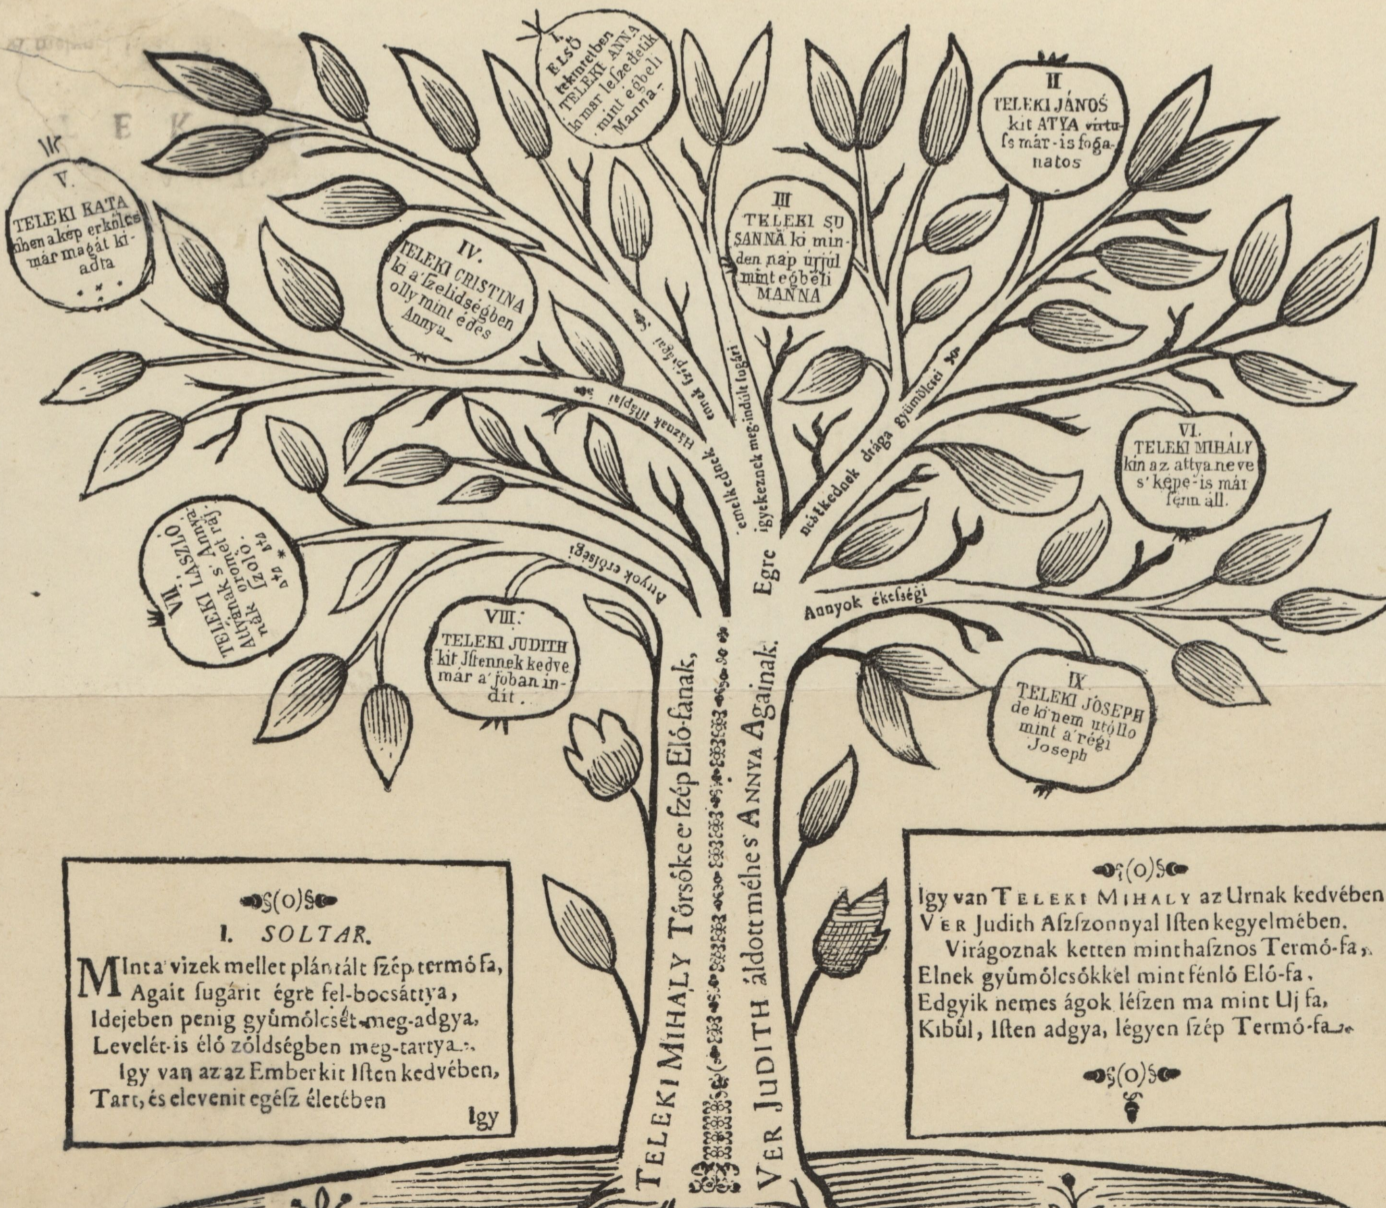 I.
ELSŐ
tekintetben
TELEKI ANNA
ki mar leſzedetik
mint egbeli
Manna
II
TELEKI JÁNOS
kit ATYA virtu-
ſs már-is foga-
natos
III
TELEKI SU
SANNA ki min-
den nap úrjúl
mint egbéli
MANNA
IV.
TELEKI CRISTINA
ki a' ſzelidségben
olly mint édes
Annya
V.
TELEKI KATA
kiben a kép erkölcs
már magát ki-
adta
VI.
TELEKI MIHÁLY
kin az attya neve
s' képe-is már
fenn áll.
VII.
TELEKI LÁSZLÓ
Attyának s' Annyá-
nák öromet raj-
zoló.
VIII.
TELEKI JUDITH
kit Jſtennek kedve
már a' joban in-
dit.
IX
TELEKI JOSEPH
de ki nem utóllo
mint a' régi
Joseph
emelkednek ennek ſzépságai
Háznak
igyekeznek meg-indúlt sugári
neſtkednek drága gyümölcsei
Attyok erőlségi
Annyok ékeſségi
Egre
TELEKI MIHALY Tórsóke e' ſzép Eló-fanak,
VER JUDITH áldott méhe s' ANNYA Againak.
I. SOLTAR.
MInt a' vizek mellet plántált ſzép termó fa,
Agait sugárit égre fel-bocsáttya,
Idejeben penig gyúmólcsét meg-adgya,
Levelét-is éló zóldségben meg-tartya.
Igy van az az Ember kit Iſten kedvében,
Tart, és elevenit egéſz életében
Igy
Igy van TELEKI MIHALY az Urnak kedvében
VER Judith Aſzſzonnyal Iſten kegyelmében.
Virágoznak ketten mint haſznos Termó-fa,
Elnek gyúmólcsókkel mint fénló Eló-fa,
Edgyik nemes ágok léſzen ma mint Uj fa,
Kibúl, Iſten adgya, légyen ſzép Termó-fa